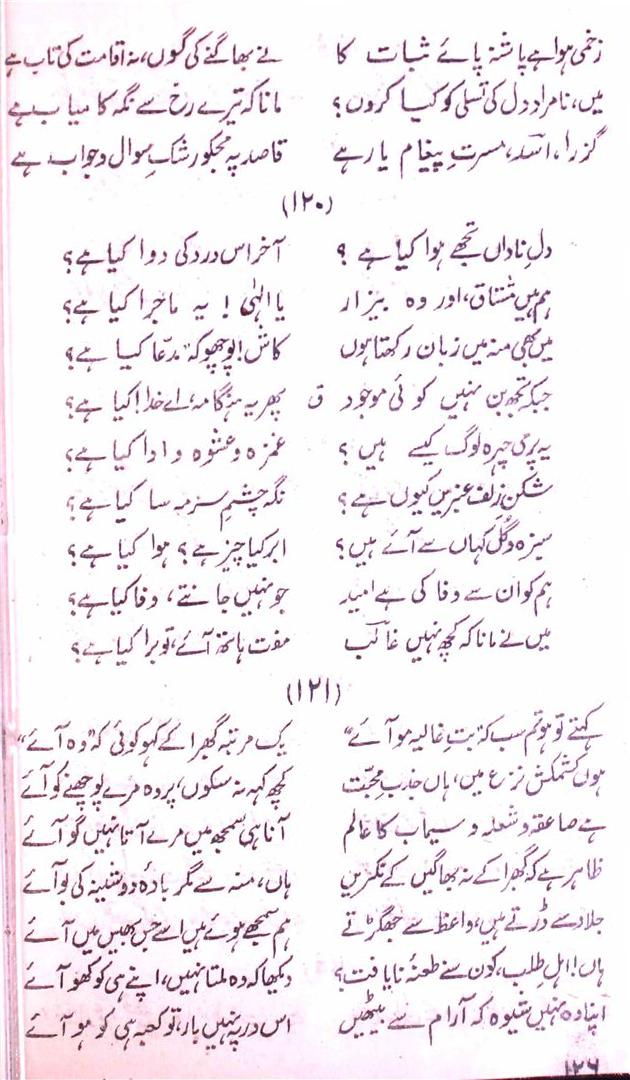 زخمی ہوا ہے پاشنہ پائے ثبات کا نے بھاگنے کی گوں، نہ اقامت کی تاب ہے
میں، نامراد دل کی تسلی کو کیا کروں؟ مانا کہ تیرے رخ سے نگہ کامیاب ہے
گزرا، اسؔد، مسرتِ پیغامِ یار سے قاصد پہ مجکو رشکِ سوال و جواب ہے
(۱۲۰)
دلِ ناداں تجھے ہوا کیا ہے ؟ آخر اس درد کی دوا کیا ہے؟
ہم ہیں مشتاق، اور وہ بیزار یا الٰہی! یہ ماجرا کیا ہے؟
میں بھی منہ میں زبان رکھتا ہوں کاش! پوچھو کہ "مدّعا کیا ہے؟
جبکہ تجھ بن نہیں کوئی موجود ق پھر یہ ہنگامہ، اے خدا! کیا ہے؟
یہ پری چہرہ لوگ کیسے ہیں ؟ غمزہ و عشوہ و ادا کیا ہے؟
شکنِ زلفِ عنبریں کیوں ہے؟ نگہِ چشمِ سرمہ سا کیا ہے؟
سبزہ و گل کہاں سے آئے ہیں؟ ابر کیا چیز ہے؟ ہوا کیا ہے؟
ہم کو ان سے وفا کی ہے امید جو نہیں جانتے، وفا کیا ہے؟
میں نے مانا کہ کچھ نہیں غالبؔ مفت ہاتھ آئے، تو برا کیا ہے؟
(۱۲۱)
کہتے تو ہو تم سب کہ "بتِ غالیہ مو آئے" یک مرتبہ گھبرا کے کہو کوئی کہ "وہ آئے"
ہوں کشمکشِ نزع میں، ہاں جذبِ محبّت کچھ کہہ نہ سکوں، پر وہ مرے پوچھنے کو آئے
ہے صاعقہ و شعلہ و سیماب کا عالم آنا ہی سمجھ میں مرے آتا نہیں گو آئے
ظاہر ہے کہ گھبرا کے نہ بھاگیں گے نکیرین ہاں، منہ سے مگر بادۂ دوشینہ کی بو آئے
جلاد سے ڈرتے ہیں، نہ واعظ سے جھگڑتے ہم سمجھے ہوئے ہیں اسے جس بھیس میں آئے
ہاں! اہلِ طلب، کون سنے طعنۂ نایافت؟ دیکھا کہ وہ ملتا نہیں، اپنے ہی کو کھو آئے
اپنا وہ نہیں شیوہ کہ آرام سے بیٹھیں اس در پہ نہیں بار، تو کعبہ ہی کو ہو آئے
۱۲۶